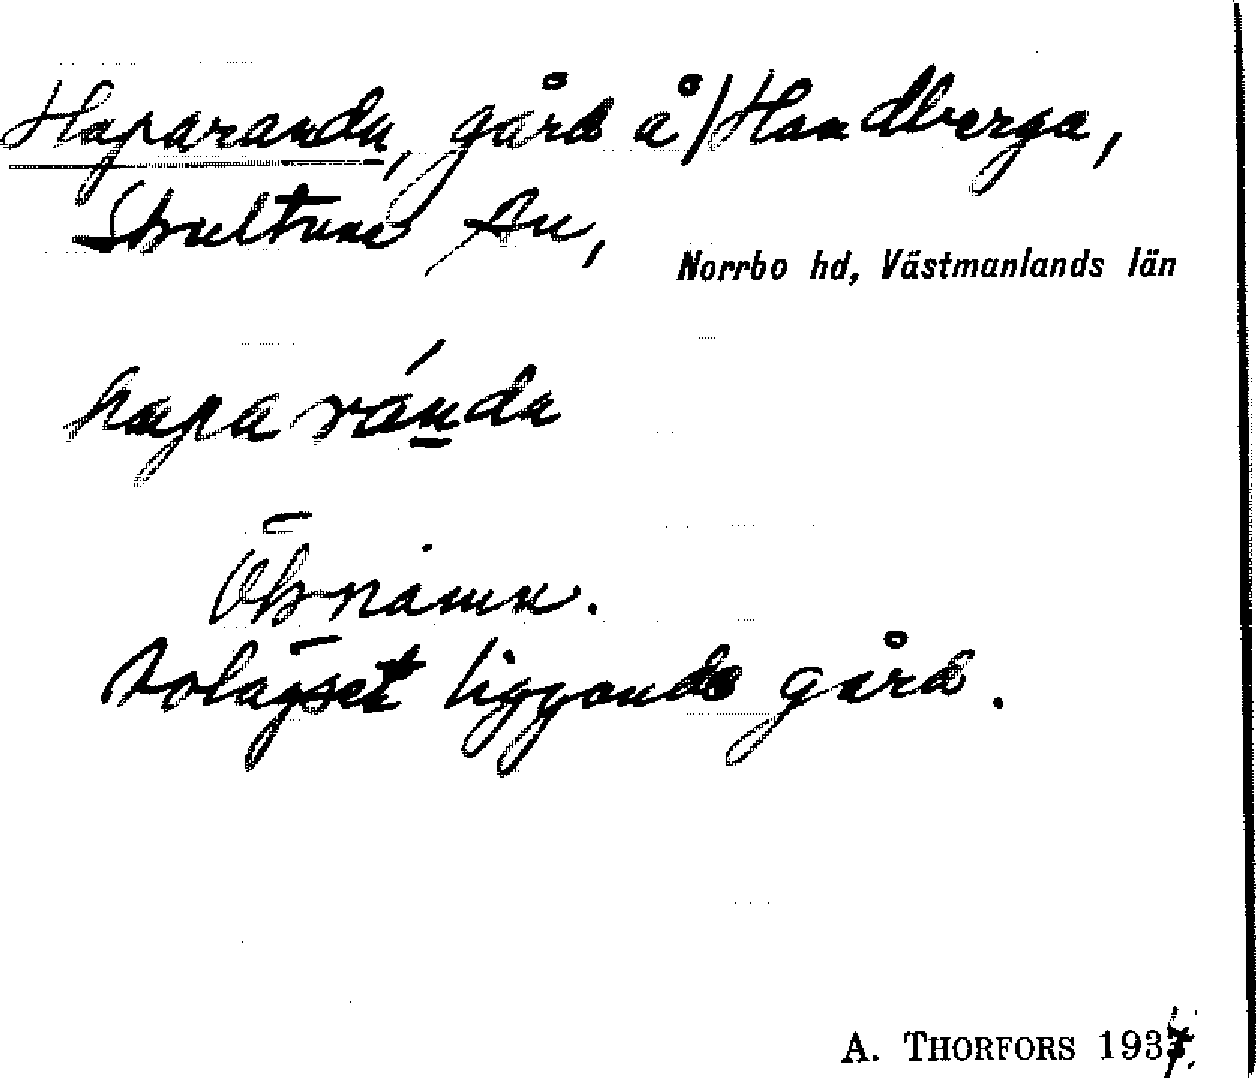 Haparanda, gård å/Handberga,
Skultuna sn,
Norrbo hd, Västmanlands län
haparánda
Öknamn.
avlägset liggande gård.
A. THORFORS 1937.